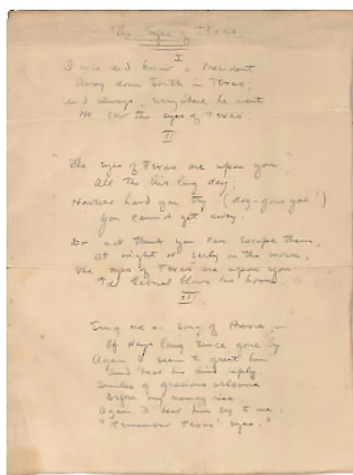 The Eyes of Texas.
I
I once did know a President
Away down South in Texas;
And always, everywhere he went
He saw the eyes of Texas
II
"The Eyes of Texas are upon you"
All the live long day;
However hard you try (dog-gone you!)
You cannot get away.
Do not think you can escape them,
At night or early in the morn,
The eyes of Texas are upon you
Gabriel blows his horn.
III.
Sing me a song of
Of days long since gone by
Again I seem to greet him
And hear his kind reply
Smiles of gracious welcome
Before my memory rise
Again I hear him say to me:
"Remember Texas' Eyes."